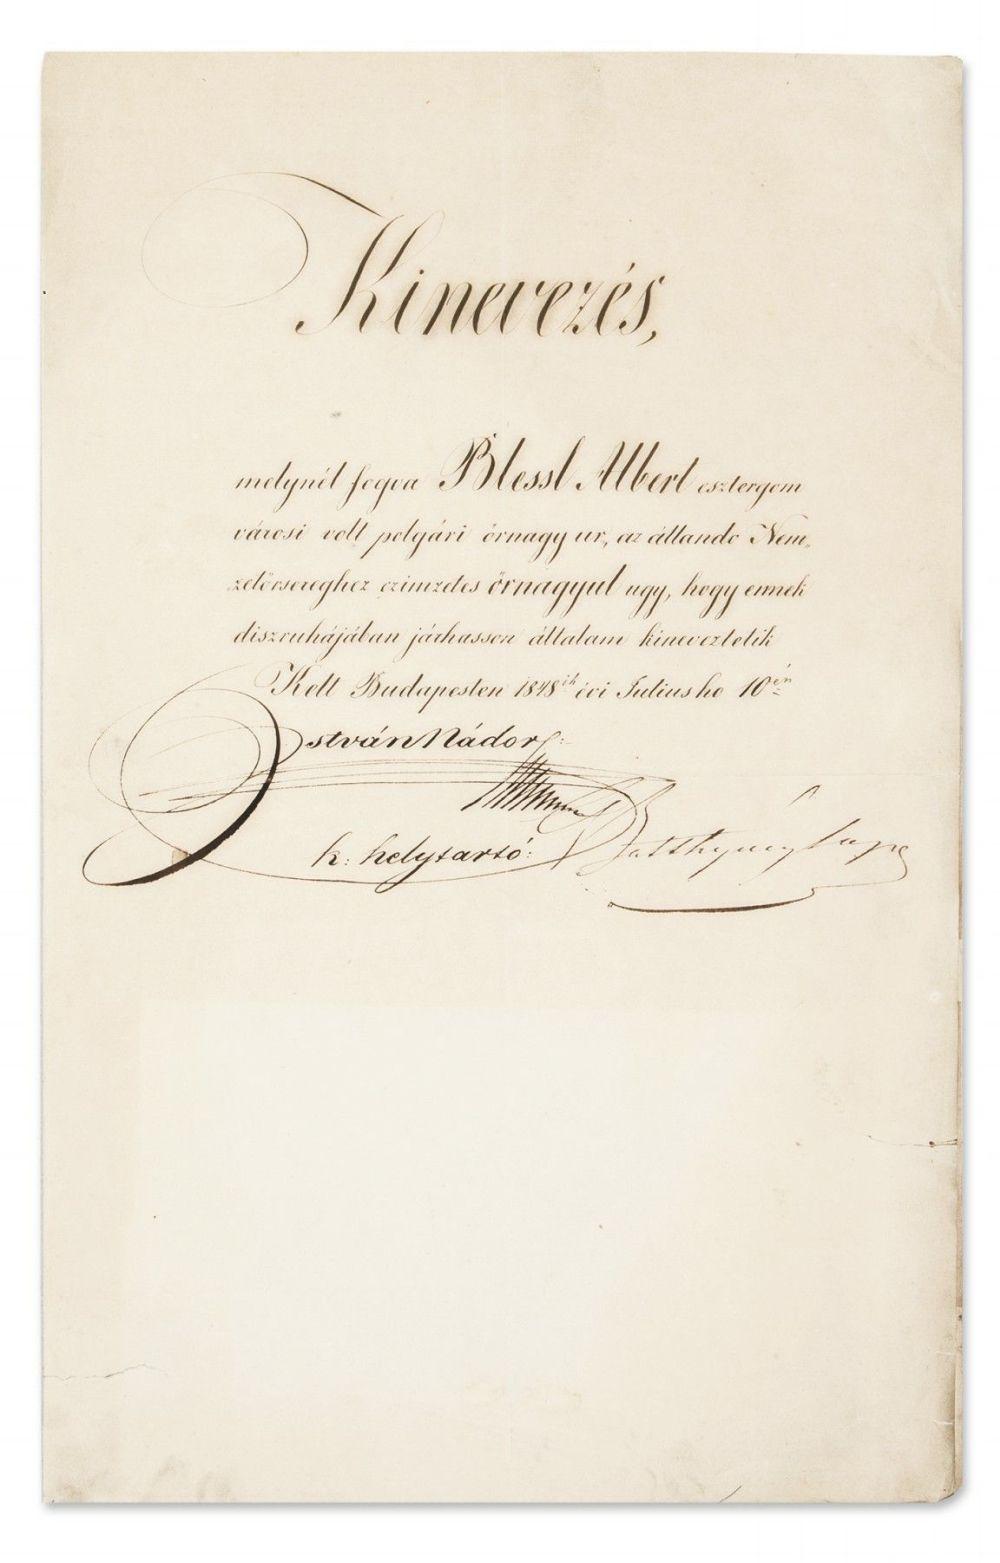 Kinevezés,
melynél fogva Blessl Albert esztergom
városi volt polgári örnagy ur, az állando Nem,
zetörsereghez czimzetes örnagyul ugy, hogy ennek
diszruhájában járhasson általam kineveztetik
Kelt Budapesten 1848ik évi Julius ho 10én
István Nádor
k: helytartó:
Batthyány Lajos